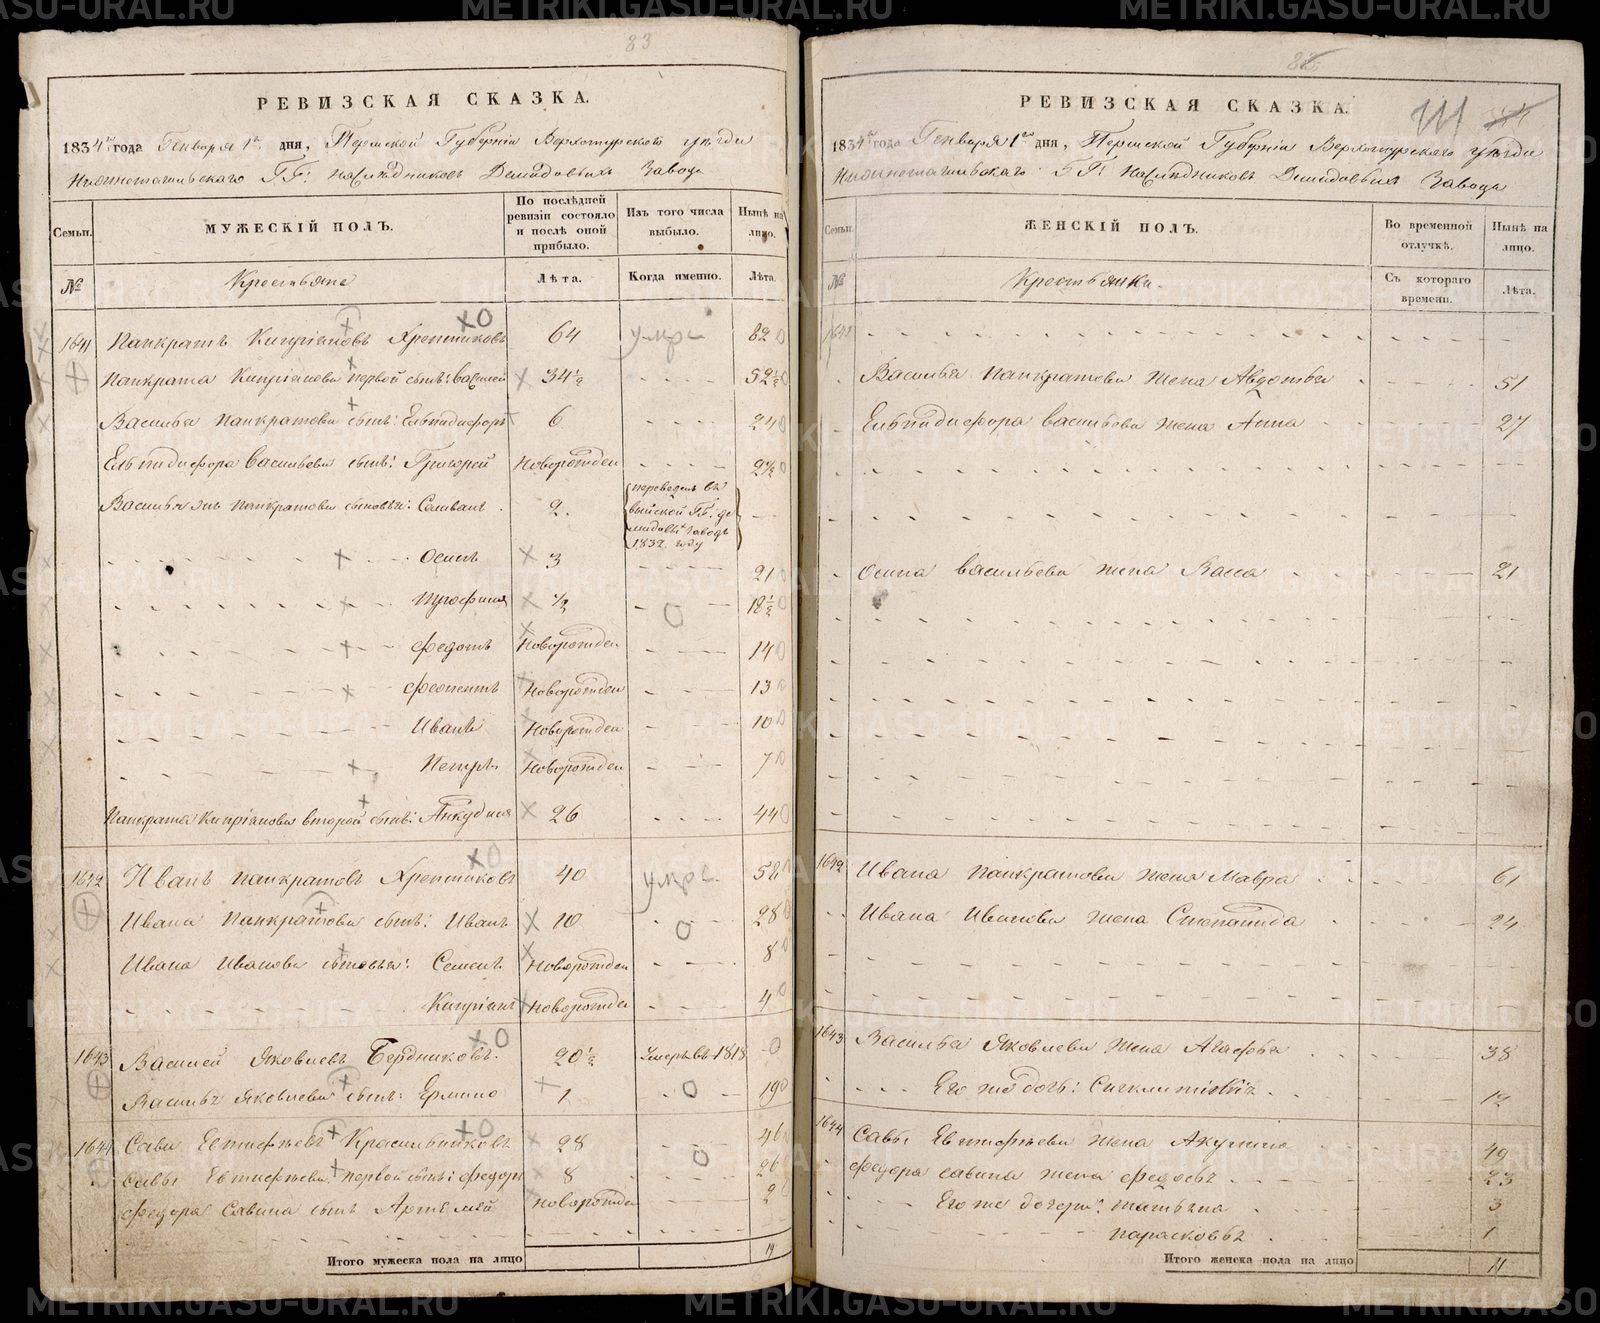 83
РЕВИЗСКАЯ СКАЗКА.
1834го года Генваря 1го дня, Пермской Губерніи Верхотурского уѣзда
Нижнетагильскаго ГГ: наслѣдниковъ Демидовыхъ Завода
Семьи.
МУЖЕСКІЙ ПОЛЪ.
По послѣдней ревизіи состояло и послѣ оной прибыло.
Изъ того числа выбыло.
Нынѣ на лицо.
№
Крестьяне
Лѣта.
Когда именно.
Лѣта.
1641 Панкратъ Кипріяновъ Хрептиковъ 64 умре 82
Панкрата Кипріянова первой сынъ: Василей 34½ 52½
Василья Панкратова сынъ: Ельпидифоръ 6 24
Ельпидифора Васильева сынъ: Григорей Новорожден 2½
Василья Панкратова сыновья: Селиванъ 2. переведенъ въ Выйской ГГ: Демидовыхъ Заводъ 1832 году
Осипъ 3 21
Трофимъ ½ 18½
Федотъ Новорожден 14
Феопентъ Новорожден 13
Иванъ Новорожден 10
Петръ Новорожден 7
Панкрата Кипріянова второй сынъ: Анкудинъ 26 44
1642 Иванъ Панкратовъ Хрептиковъ 40 умре 58
Ивана Панкратова сынъ: Иванъ 10 28
Ивана Иванова сыновья: Семенъ Новорожден 8
Кипріянъ Новорожден 4
1643 Василей Яковлевъ Бердниковъ. 20½ Умеръ въ 1818 0
Василья Яковлева сынъ: Ермило 1 19
1644 Сава Евтифѣевъ Красильниковъ 28 46
Савы Евтифѣева первой сынъ: Федоръ 8 26
Федора Савина сынъ Артемей Новорожден 2
Итого мужеска пола на лицо 19
82
РЕВИЗСКАЯ СКАЗКА.
111
1834го года Генваря 1го дня, Пермской Губерніи Верхотурскаго уѣзда
Нижнетагильскаго ГГ: наслѣдниковъ Демидовыхъ Завода
Семьи.
ЖЕНСКІЙ ПОЛЪ.
Во временной отлучкѣ.
Нынѣ на лицо.
№
Крестьянки.
Съ котораго времени.
Лѣта.
1641
Василья Панкратова жена Авдотья 51
Ельпидифора Васильева жена Анна 27
Осипа Васильева жена Васса 21
1642 Ивана Панкратова жена Мавра 61
Ивана Иванова жена Степанида 24
1643 Василья Яковлева жена Агафья 38
Его же дочь: Синклитикія 12
1644 Савы Евтифѣева жена Акулина 49
Федора Савина жена Федосья 23
Его же дочери: Татьяна 3
Парасковья 1
Итого женска пола на лицо 11
METRIKI.GASO-URAL.RU